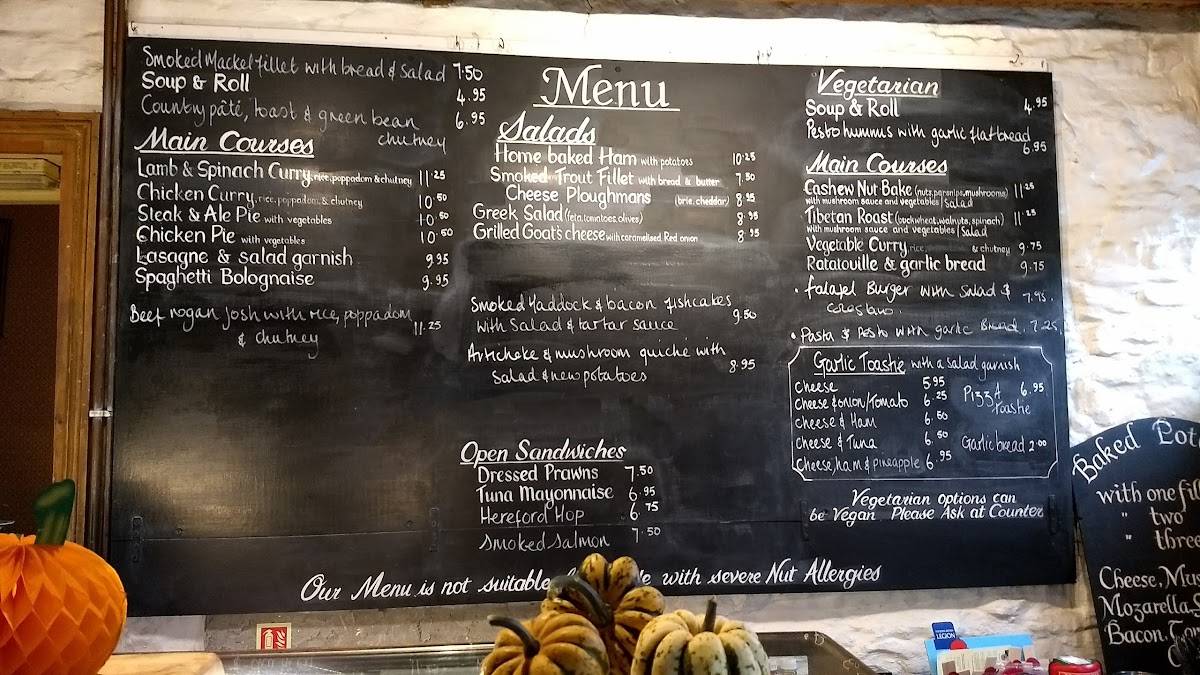 Smoked Mackel fillet with bread & salad 7.50
Soup & Roll 4.95
Country pâté, toast & green bean chutney 6.95
Main Courses
Lamb & Spinach Curry, rice, poppadom & chutney 11.25
Chicken Curry, rice, poppadom, & chutney 10.50
Steak & Ale Pie with vegetables 10.50
Chicken Pie with vegetables 10.50
Lasagne & salad garnish 9.95
Spaghetti Bolognaise 9.95
Beef rogan Josh with rice, poppadom
& chutney 11.25
Menu
Salads
Home baked Ham with potatoes 10.25
Smoked Trout Fillet with bread & butter 7.50
Cheese Ploughmans (brie, cheddar) 8.95
Greek Salad (feta, tomatoes, olives) 8.95
Grilled Goat's cheese with caramelised Red onion 8.95
Smoked Haddock & bacon fishcakes
with salad & tartar sauce 9.50
Artichoke & mushroom quiché with
salad & new potatoes 8.95
Open Sandwiches
Dressed Prawns 7.50
Tuna Mayonnaise 6.95
Hereford Hop 6.75
Smoked Salmon 7.50
Vegetarian
Soup & Roll 4.95
Pesto hummus with garlic flatbread 6.95
Main Courses
Cashew Nut Bake (nuts, parsnips, mushrooms) 11.25
with mushroom sauce and vegetables | Salad
Tibetan Roast (buckwheat, walnuts, spinach) 11.25
with mushroom sauce and vegetables | Salad
Vegetable Curry, rice, & chutney 9.75
Ratatouille & garlic bread 9.75
• falafel Burger with salad & 7.95.
coleslaw.
• Pasta & Pesto with garlic Bread. 7.25.
Garlic Toastie with a salad garnish
Cheese 5.95
Cheese & onion/Tomato 6.25
Cheese & Ham 6.50
Cheese & Tuna 6.50
Cheese, ham & pineapple 6.95
Pizza Toastie 6.95
Garlic bread 2.00
Vegetarian options can
be Vegan Please Ask at Counter
Our Menu is not suitable with severe Nut Allergies
Baked Pot
with one fil
" two
" three
Cheese, Mu
Mozarella,
Bacon,
LEGION